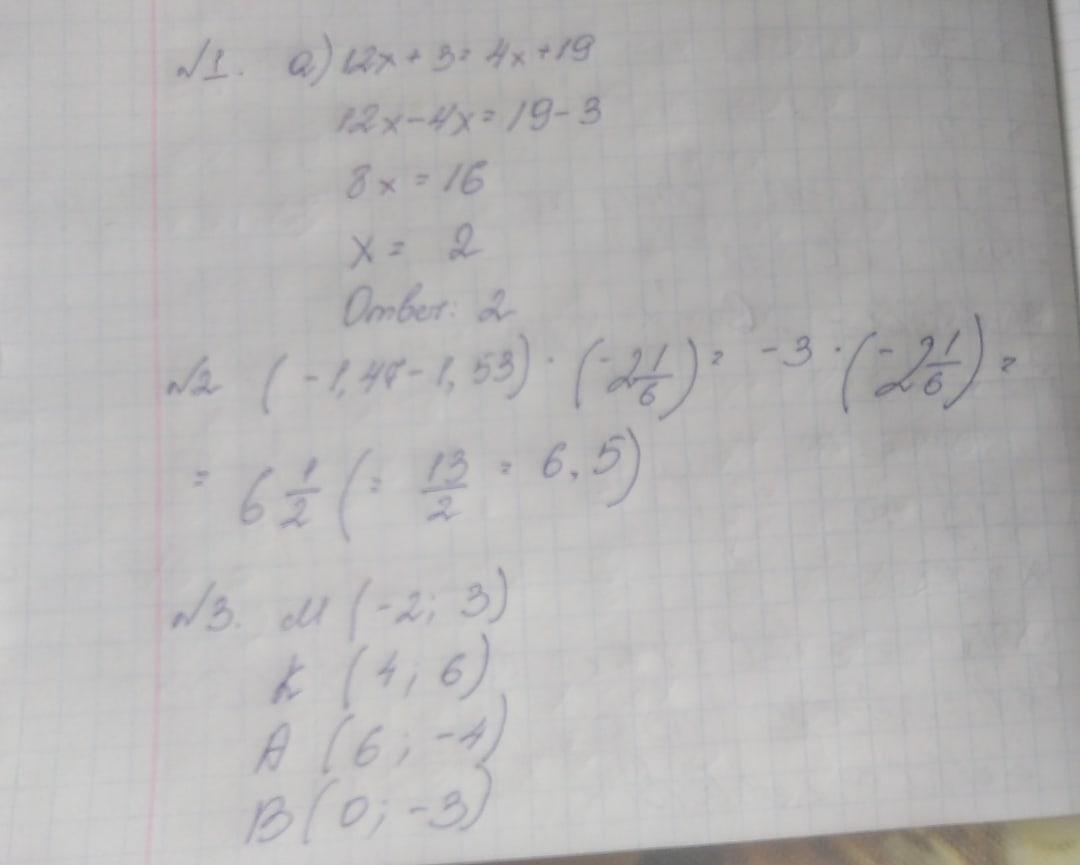 №1. а) 12x + 3 = 4x + 19
12x - 4x = 19 - 3
8x = 16
x = 2
Ответ: 2
№2 (-1,47 - 1,53) · (-2 1/6) = -3 · (-2 1/6) =
= 6 1/2 (= 13/2 = 6,5)
№3. М (-2; 3)
К (4; 6)
А (6; -4)
В (0; -3)